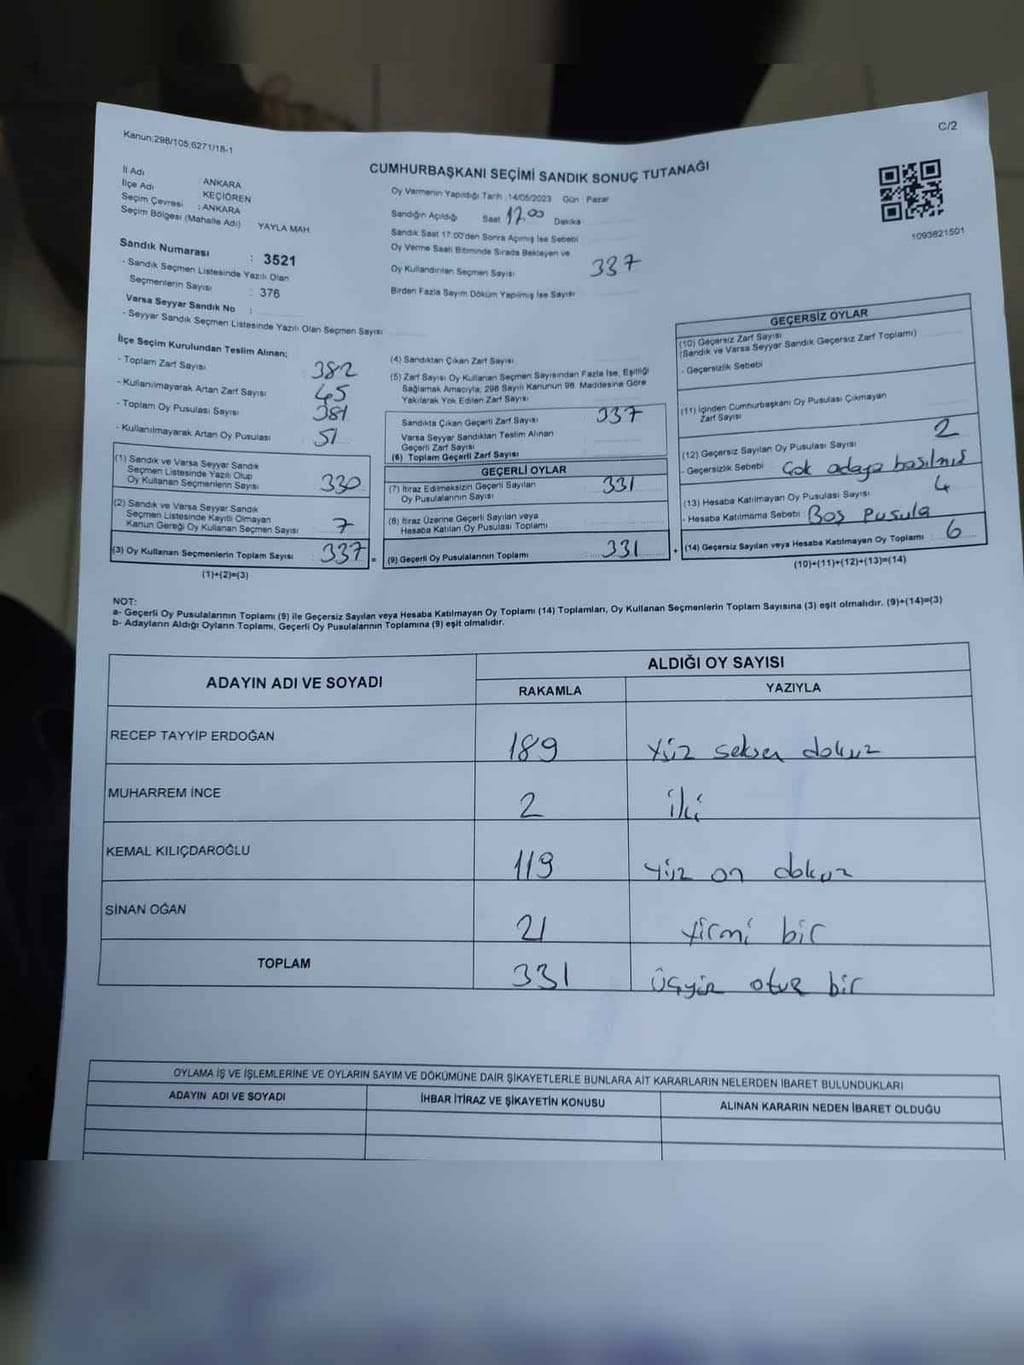 C/2
Kanun;298/105,6271/18-1
CUMHURBAŞKANI SEÇİMİ SANDIK SONUÇ TUTANAĞI
İl Adı : ANKARA
İlçe Adı KEÇİÖREN
Seçim Çevresi : ANKARA
Seçim Bölgesi (Mahalle Adı) YAYLA MAH.
Sandık Numarası : 3521
- Sandık Seçmen Listesinde Yazılı Olan
Seçmenlerin Sayısı : 376
Varsa Seyyar Sandık No :
- Seyyar Sandık Seçmen Listesinde Yazılı Olan Seçmen Sayısı
Oy Vermenin Yapıldığı Tarih :14/05/2023 Gün : Pazar
Sandığın Açıldığı Saat 17.00 Dakika
Sandık Saat 17:00'den Sonra Açılmış İse Sebebi
Oy Verme Saati Bitiminde Sırada Bekleyen ve
Oy Kullandırılan Seçmen Sayısı 337
Birden Fazla Sayım Döküm Yapılmış İse Sayısı
1093821501
İlçe Seçim Kurulundan Teslim Alınan;
- Toplam Zarf Sayısı 382
- Kullanılmayarak Artan Zarf Sayısı 45
- Toplam Oy Pusulası Sayısı 381
- Kullanılmayarak Artan Oy Pusulası 51
(1) Sandık ve Varsa Seyyar Sandık
Seçmen Listesinde Yazılı Olup
Oy Kullanan Seçmenlerin Sayısı 330
(2) Sandık ve Varsa Seyyar Sandık
Seçmen Listesinde Kayıtlı Olmayan
Kanun Gereği Oy Kullanan Seçmen Sayısı 7
(3) Oy Kullanan Seçmenlerin Toplam Sayısı 337 =
(1)+(2)=(3)
(4) Sandıktan Çıkan Zarf Sayısı
(5) Zarf Sayısı Oy Kullanan Seçmen Sayısından Fazla İse, Eşitliği
Sağlamak Amacıyla; 298 Sayılı Kanunun 98. Maddesine Göre
Yakılarak Yok Edilen Zarf Sayısı
Sandıkta Çıkan Geçerli Zarf Sayısı 337
Varsa Seyyar Sandıktan Teslim Alınan
Geçerli Zarf Sayısı
(6) Toplam Geçerli Zarf Sayısı
GEÇERLİ OYLAR
(7) İtiraz Edilmeksizin Geçerli Sayılan
Oy Pusulalarının Sayısı 331
(8) İtiraz Üzerine Geçerli Sayılan veya
Hesaba Katılan Oy Pusulası Toplamı
(9) Geçerli Oy Pusulalarının Toplamı 331 +
GEÇERSİZ OYLAR
(10) Geçersiz Zarf Sayısı
(Sandık ve Varsa Seyyar Sandık Geçersiz Zarf Toplamı)
- Geçersizlik Sebebi
(11) İçinden Cumhurbaşkanı Oy Pusulası Çıkmayan
Zarf Sayısı
(12) Geçersiz Sayılan Oy Pusulası Sayısı 2
- Geçersizlik Sebebi Çok adaya basılmış
(13) Hesaba Katılmayan Oy Pusulası Sayısı 4
- Hesaba Katılmama Sebebi : Boş Pusula
(14) Geçersiz Sayılan veya Hesaba Katılmayan Oy Toplamı 6
(10)+(11)+(12)+(13)=(14)
NOT:
a- Geçerli Oy Pusulalarının Toplamı (9) ile Geçersiz Sayılan veya Hesaba Katılmayan Oy Toplamı (14) Toplamları, Oy Kullanan Seçmenlerin Toplam Sayısına (3) eşit olmalıdır. (9)+(14)=(3)
b- Adayların Aldığı Oyların Toplamı, Geçerli Oy Pusulalarının Toplamına (9) eşit olmalıdır.
ADAYIN ADI VE SOYADI ALDIĞI OY SAYISI
RAKAMLA YAZIYLA
RECEP TAYYİP ERDOĞAN 189 Yüz seksen dokuz
MUHARREM İNCE 2 iki
KEMAL KILIÇDAROĞLU 119 yüz on dokuz
SİNAN OĞAN 21 yirmi bir
TOPLAM 331 üçyüz otuz bir
OYLAMA İŞ VE İŞLEMLERİNE VE OYLARIN SAYIM VE DÖKÜMÜNE DAİR ŞİKAYETLERLE BUNLARA AİT KARARLARIN NELERDEN İBARET BULUNDUKLARI
ADAYIN ADI VE SOYADI İHBAR İTİRAZ VE ŞİKAYETİN KONUSU ALINAN KARARIN NEDEN İBARET OLDUĞU